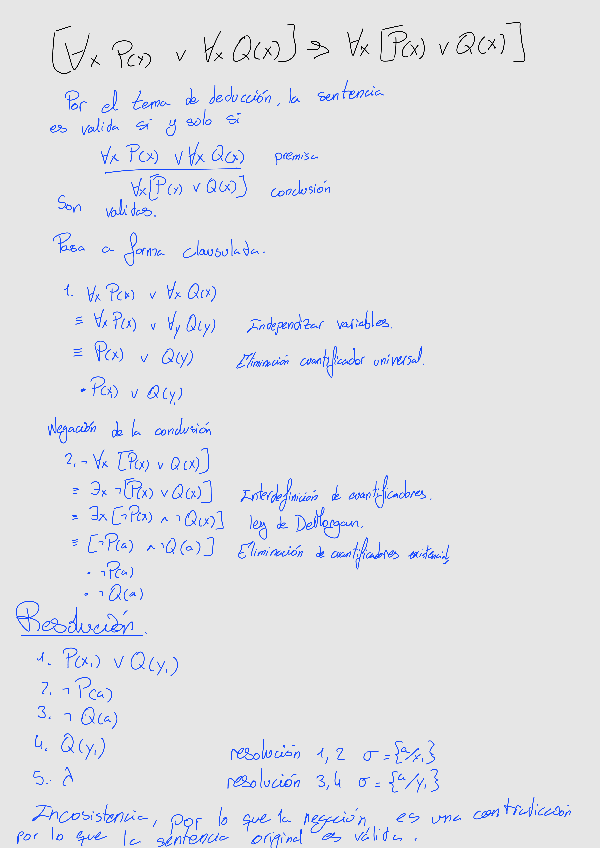 [∀x P(x) ∨ ∀x Q(x)] ⇒ ∀x [P(x) ∨ Q(x)]
Por el tema de deducción, la sentencia
es valida si y solo si
∀x P(x) ∨ ∀x Q(x) premisa
∀x[P(x) ∨ Q(x)] conclusión
Son validas.
Pasa a forma clausulada.
1. ∀x P(x) ∨ ∀x Q(x)
≡ ∀x P(x) ∨ ∀y Q(y) Independizar variables.
≡ P(x) ∨ Q(y) Eliminación cuantificador universal.
• P(x₁) ∨ Q(y₁)
Negación de la conclusión
2. ¬ ∀x [P(x) ∨ Q(x)]
≡ ∃x ¬[P(x) ∨ Q(x)] Interdefinición de cuantificadores.
≡ ∃x [¬P(x) ∧ ¬Q(x)] ley de DeMorgan.
≡ [¬P(a) ∧ ¬Q(a)] Eliminación de cuantificadores existencial
• ¬P(a)
• ¬Q(a)
Resolución.
1. P(x₁) ∨ Q(y₁)
2. ¬P(a)
3. ¬Q(a)
4. Q(y₁) resolución 1,2 σ = {a/x₁}
5. λ resolución 3,4 σ = {a/y₁}
Incosistencia, por lo que la negación es una contradicción
por lo que la sentencia original es válida.